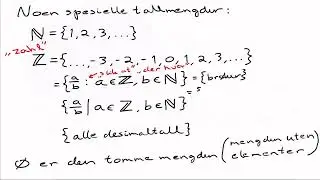 Noen spesielle tallmengder:
ℕ = {1, 2, 3, ...}
"zahl"
ℤ = {..., -3, -2, -1, 0, 1, 2, 3, ...}
"slik at" "der hvor"
= {a/b : a ∈ ℤ, b ∈ ℕ} = {brøker}
{a/b | a ∈ ℤ, b ∈ ℕ} = "
{alle desimaltall}
∅ er den tomme mengden (mengden uten elementer)